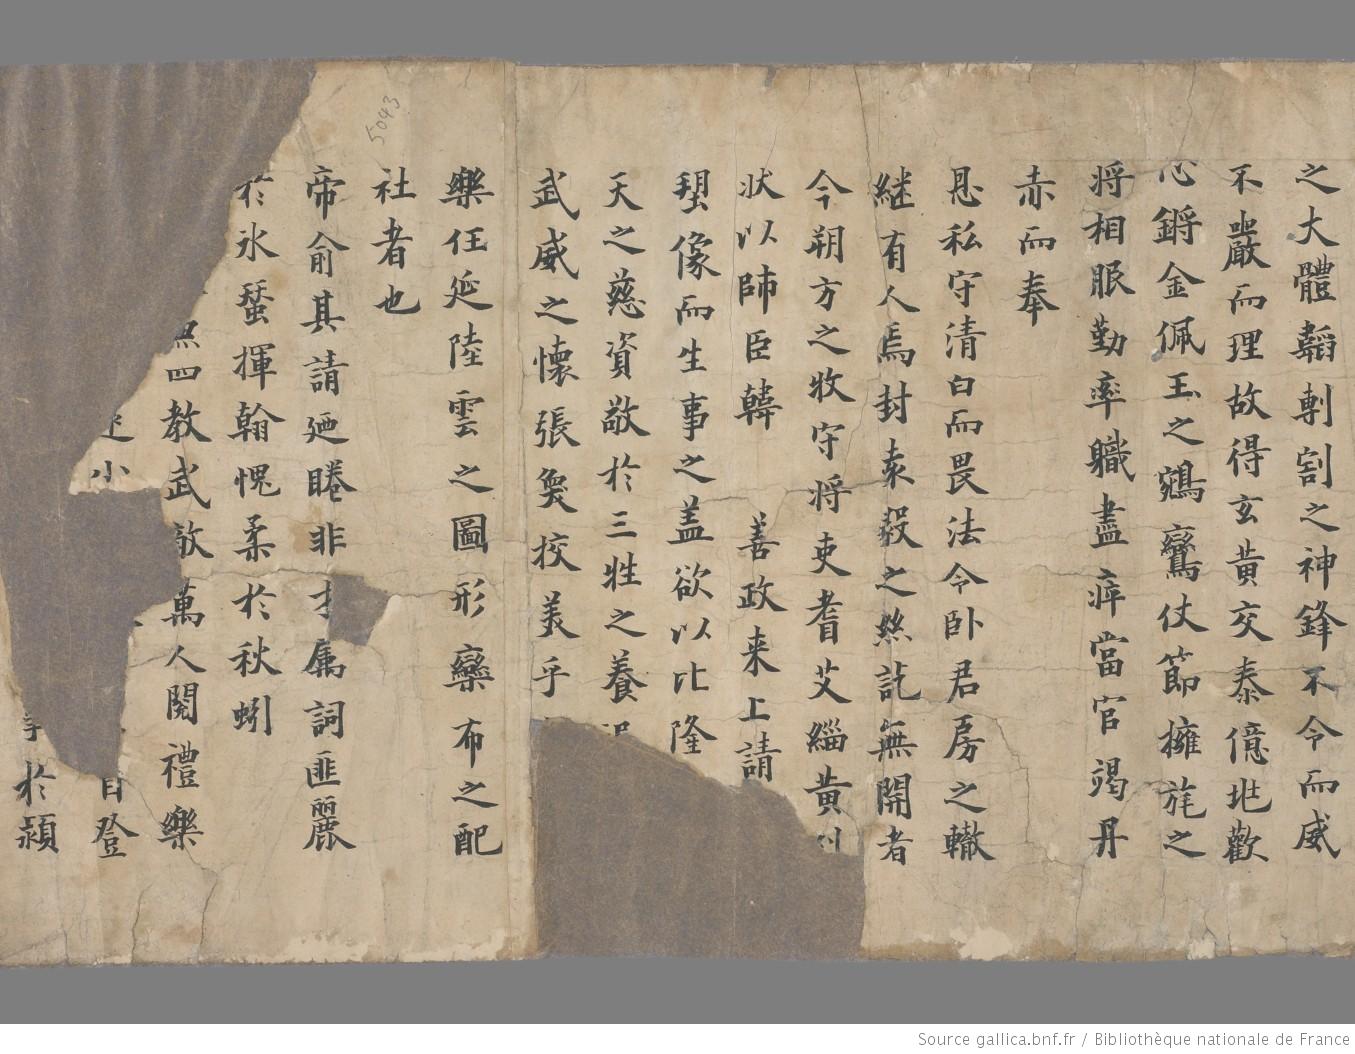 之大體韜剸割之神鋒不令而威
不嚴而理故得玄黃交泰億兆歡
心鏘金佩玉之鵷鸞仗節擁旄之
將相眠勤率職盡瘁當官竭丹
赤而奉
恩私守清白而畏法令卧君房之轍
継有人焉封袁毅之絲訖無開者
今朔方之牧守將吏耆艾緇黃
狀以帥臣韓 善政来上請
琞像而生事之盖欲以比隆
天之慈資敬於三牲之養
武威之懷張奐挍美乎
樂任延陸雲之圖形欒布之配
社者也
帝俞其請廼睠非才属詞匪麗
於氷蠶揮翰愧柔於秋蚓
四教武敵萬人閱禮樂
小 自登
於潁
5043
Source gallica.bnf.fr / Bibliothèque nationale de France